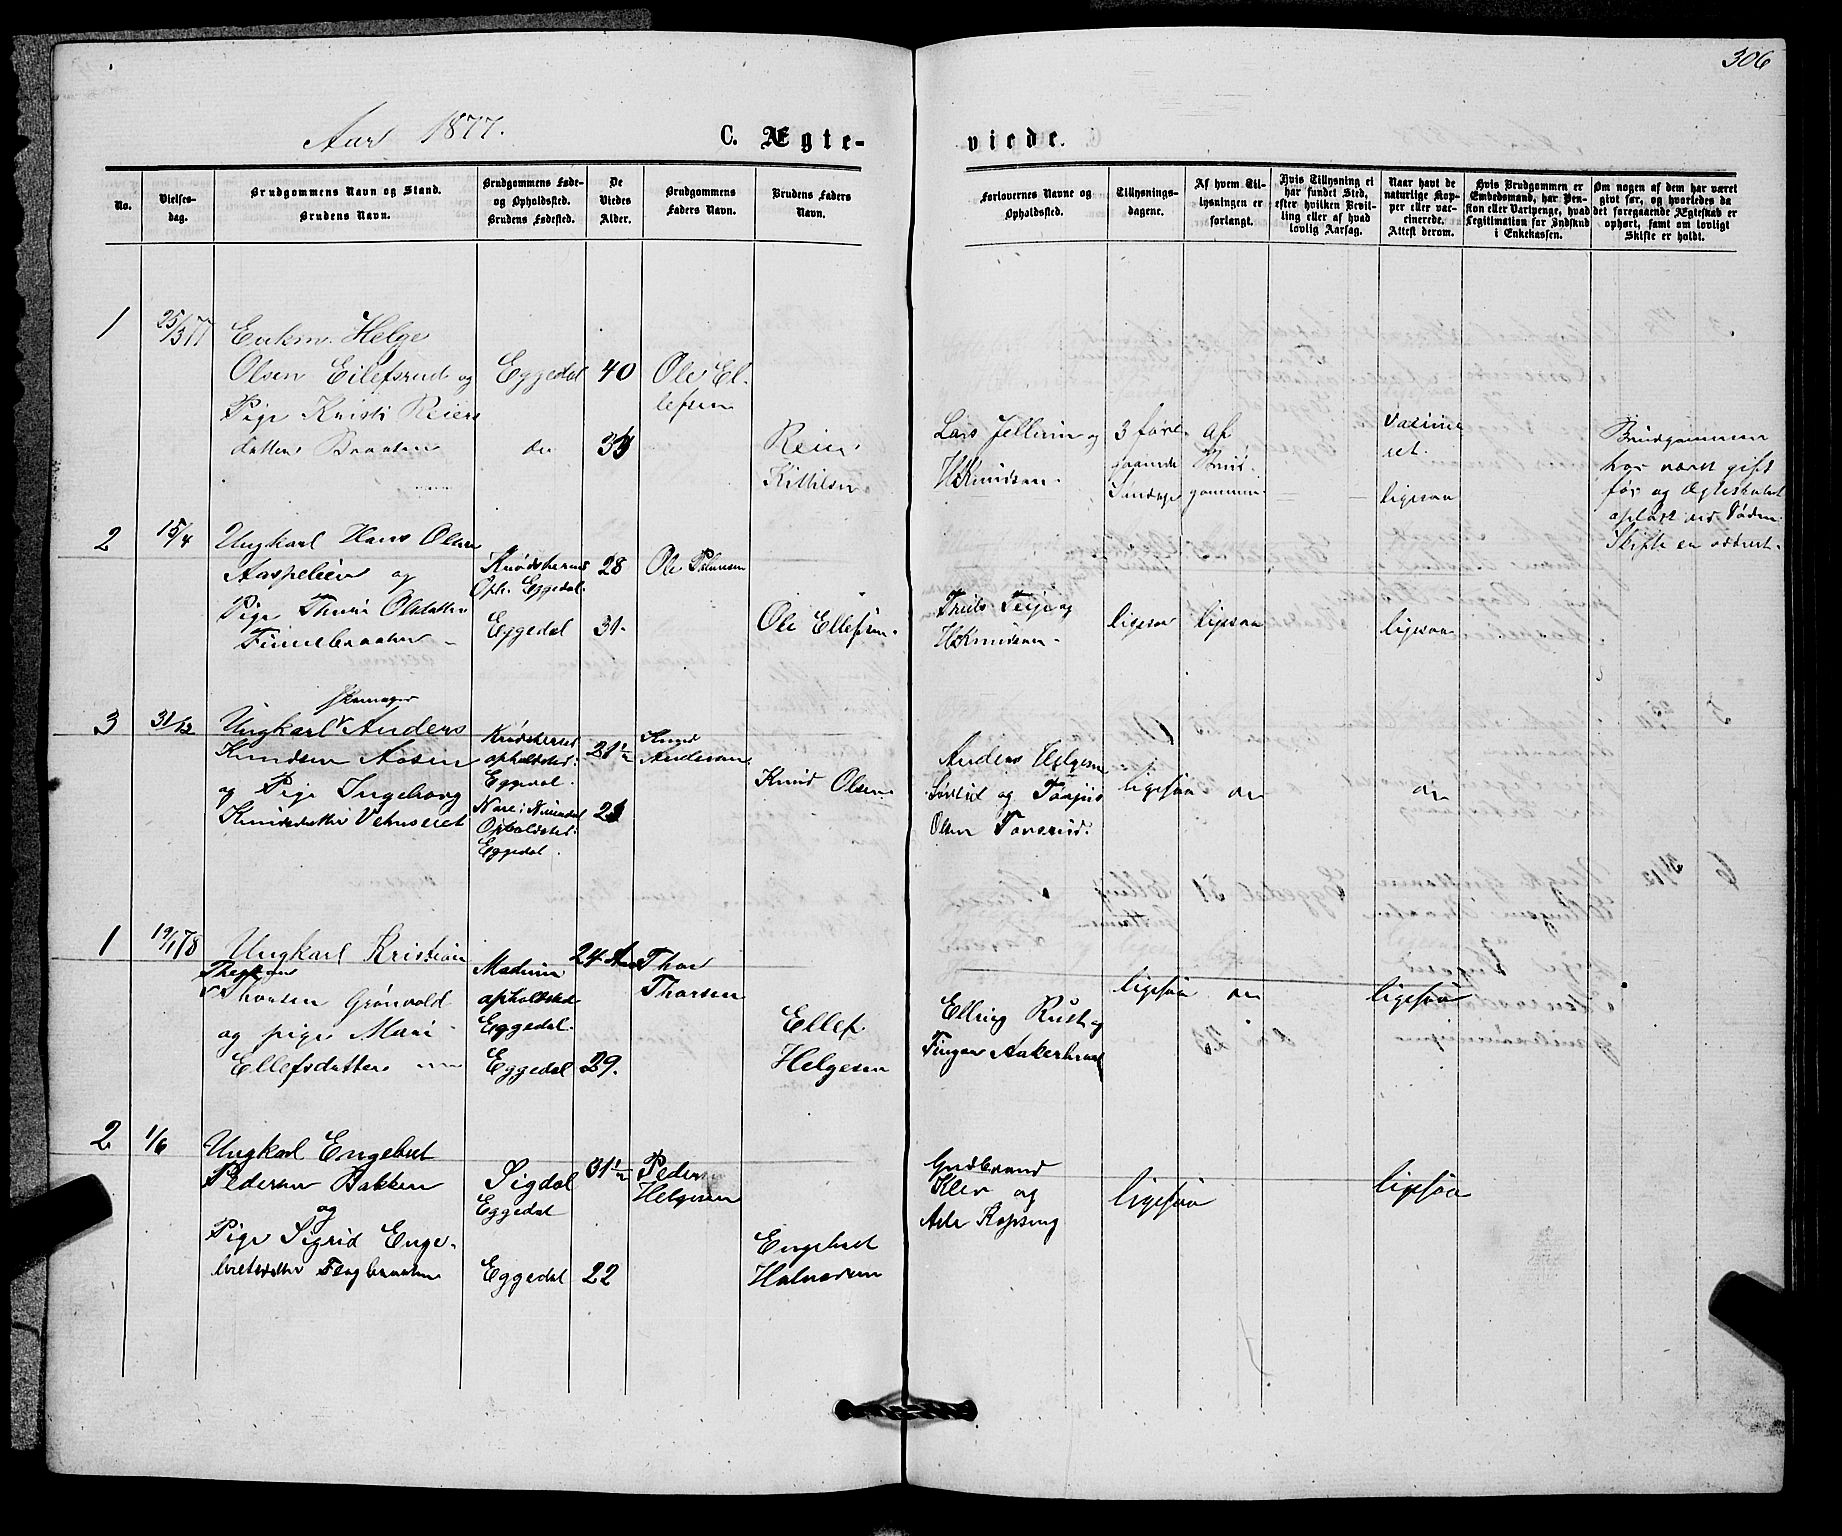 306
Aar 1877.
C. Ægteviede.
No.
Vielsesdag.
Brudgommens Navn og Stand.
Brudens Navn.
Brudgommens Fødeog Opholdssted.
Brudens Fødested.
De Viedes Alder.
Brudgommens Faders Navn.
Brudens Faders Navn.
Forlovernes Navne og Opholdssted.
Tillysningsdagene.
Af hvem Tillysningen er forlangt.
Hvis Tillysning ei har fundet Sted, efter hvilken Bevilling eller af hvad lovlig Aarsag.
Naar havt de naturlige Kopper eller vaccinerede. Attest derom.
Hvis Brudgommen er Embedsmand, har Pension eller Vartpenge, hvad Legitimation for Indskud i Enkekassen.
Om nogen af dem har været gift før, og hvorledes da det foregaaende Ægteskab er ophørt, samt om lovligt Skifte er holdt.
1
25/3 77
Enkm. Helge
Olsen Eilefsrud og
Pige Kristi Reiers
datter Braaten
Eggedal
do
40
Ole El-
lefsen
Reier
Kittilsen
Lars Jellum og
H Knudsen
3 føre-
gaaende
Søndage
af
Brud-
gommen
vaccine
ret.
ligesaa
Brudgommen
har været gift
før og Ægteskabet
opløst ved Døden
Skifte er
2
15/4
Ungkarl Hans Olsen
Aaspelien og
Pige Thuri Olsdatter
Finnebraaten
Krødsherred
Oph. Eggedal.
Eggedal
28
31.
Ole
Ole Ellefsen.
Truls Teije og
H Knudsen
ligesaa
ligesaa
ligesaa
3
31/12
Ungkarl Anders
Knudsen Aasen
og Pige Ingeborg
Knudsdatter
Krødsherred
opholdsted:
Eggedal.
Nore i Numedal
Opholdsted:
Eggedal.
21 1/2
Knud
Andersen
Knud Olsen
Anders Helgesen
og
Olsen
ligesaa
do
do
1
19/1 78
Ungkarl Kristian
Thorsen Grønvold
og pige Mari
Ellefsdatter
Modum
opholdsted
Eggedal.
Eggedal
24 Aar
29.
Thor
Thorsen
Ellef
Helgesen
Elling Rust og
Finger Aakerbraat
ligesaa
do
ligesaa
2
1/6
Ungkarl Engebret
Pedersen Bakken
og
Pige Sigrid Enge-
bretsdatter Flagbraaten
Sigdal
Eggedal
Eggedal
31 1/2
22
Peder
Helgesen
Engebret
Halvorsen
Gudbrand
Kler og
Asle Kopseng
ligesaa
ligesaa